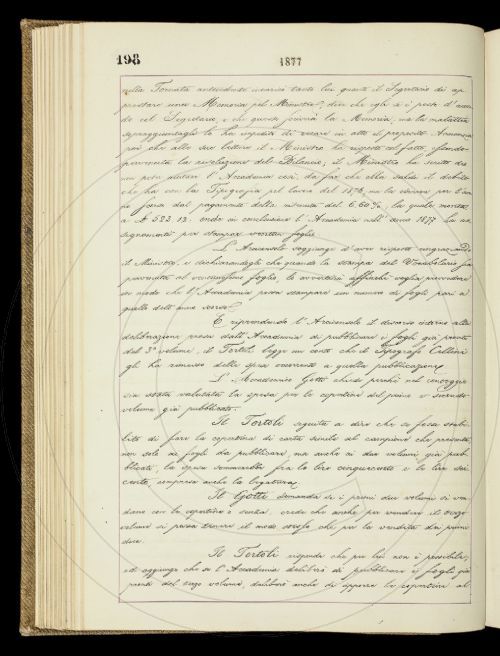 198
1877
nella Tornata antecedente incaricò tanto lui quanto il Segretario di ap-
prestare una Memoria pel Ministro, dice che egli si è posto d'accor-
do col Segretario, e che questi scriverà la Memoria, ma la malattia
sopraggiuntagli lo ha impedito di recare in atto il proposito. Annunzia
poi che alla sua lettera il Ministro ha risposto col fatto, essendo
pervenuta la del Bilancio; il Ministro ha scritto
non potere aiutare l'Accademia così, da far che ella saldi il debito
che ha con la Tipografia pel lavoro del 1876, ma la
da dal pagamento della ritenuta del 6.60%, la quale monta
a £ 523 13. onde in conclusione l'Accademia nell'anno 1877 ha as-
segnamenti per stampare fogli.
L'Arciconsolo soggiunge d'aver risposto ringraziando
il Ministro, e dichiarandogli che quando la stampa del Vocabolario sia
pervenuta al foglio, lo avvertirà affinchè voglia provvedere
in modo che l'Accademia possa stampare un numero di fogli pari a
quello dell'anno scorso.
E riprendendo l'Arciconsolo il discorso intorno alla
deliberazione presa dall'Accademia di pubblicare i fogli già pronti
del 3º volume, il Tortoli legge un conto che il Tipografo Cellini
gli ha rimesso della spesa occorrente a quella pubblicazione.
L'Accademico Gotti chiede perchè nel conteggio
sia stata valutata la spesa per le copertine del primo e secondo
volume già pubblicato.
Il Tortoli seguita a dire che se fosse stabi-
lito di fare la copertina di carta simile al campione che presenta,
non solo ai fogli da pubblicare, ma anche ai due volumi già pub-
blicati, la spesa sommerebbe fra le lire cinquecento e le lire sei-
cento, compresa anche la legatura.
Il Gotti domanda se i primi due volumi si ven-
dano con la copertina e scelta, crede che anche per vendere il terzo
volume si possa tenere il modo stesso che per la vendita dei primi
due.
Il Tortoli risponde che per lui non è possibile,
ed aggiunge che se l'Accademia deliberò di pubblicare i fogli già
pronti del terzo volume, deliberò anche di apporre la copertina al